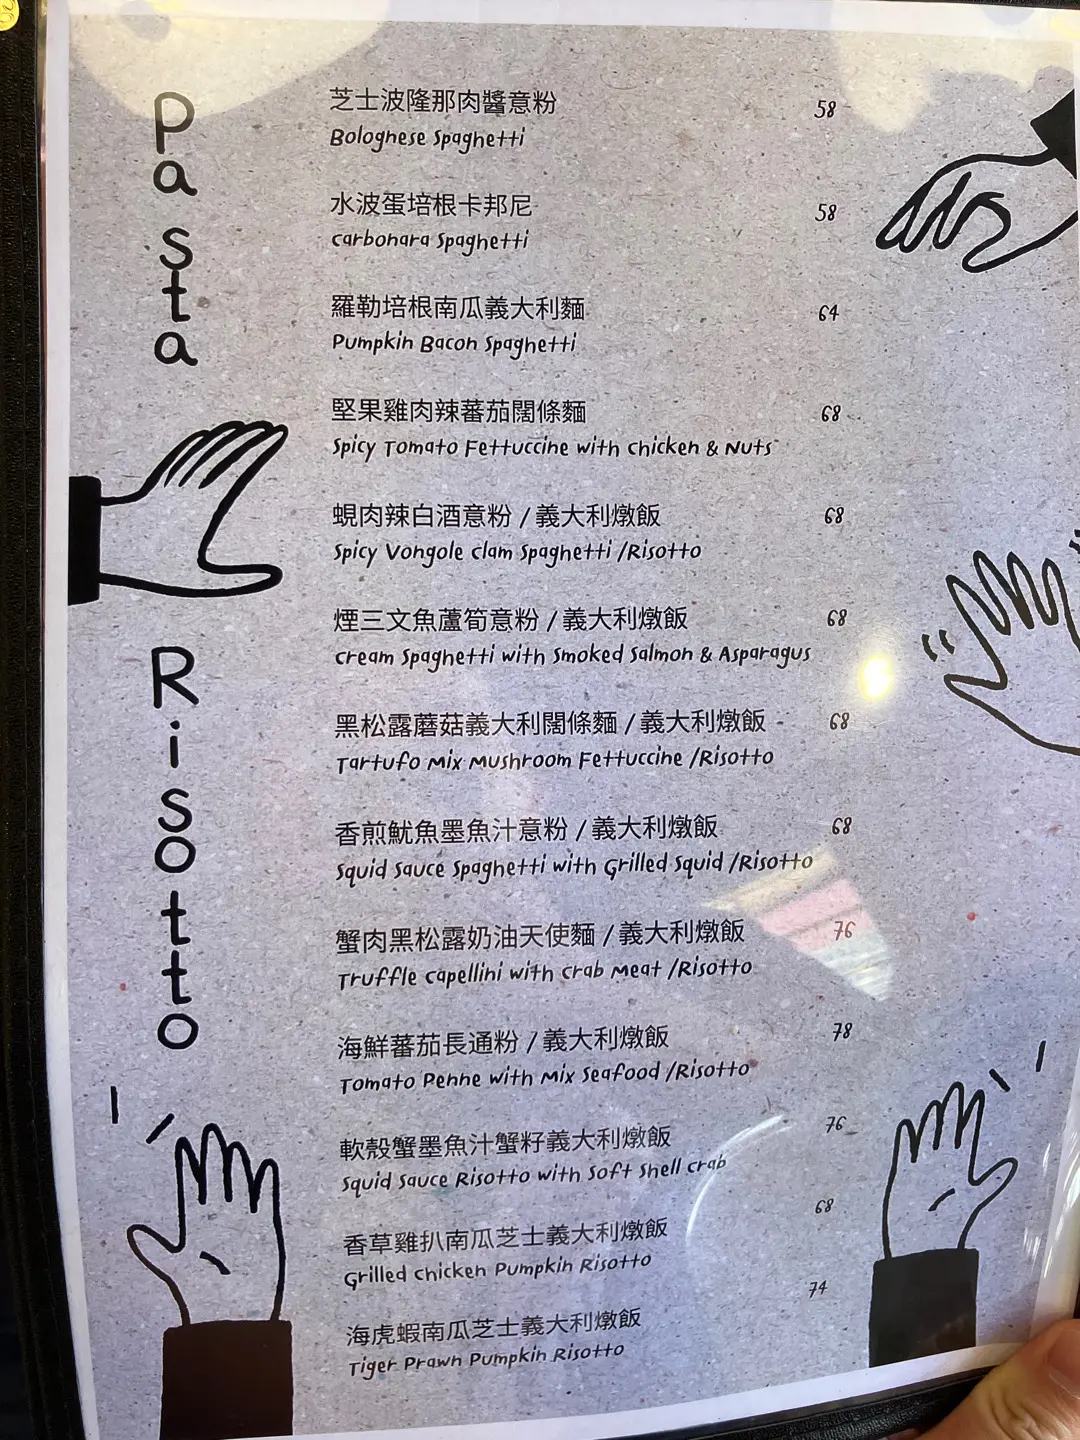 Pasta
芝士波隆那肉醬意粉 58
Bolognese Spaghetti
水波蛋培根卡邦尼 58
Carbonara Spaghetti
羅勒培根南瓜義大利麵 64
Pumpkin Bacon Spaghetti
堅果雞肉辣蕃茄闊條麵 68
Spicy Tomato Fettuccine with Chicken & Nuts
蜆肉辣白酒意粉 / 義大利燉飯 68
Spicy Vongole Clam Spaghetti /Risotto
煙三文魚蘆筍意粉 / 義大利燉飯 68
Cream Spaghetti with Smoked Salmon & Asparagus
Risotto
黑松露蘑菇義大利闊條麵 / 義大利燉飯 68
Tartufo Mix Mushroom Fettuccine /Risotto
香煎魷魚墨魚汁意粉 / 義大利燉飯 68
Squid Sauce Spaghetti with Grilled Squid /Risotto
蟹肉黑松露奶油天使麵 / 義大利燉飯 76
Truffle Capellini with Crab Meat /Risotto
海鮮蕃茄長通粉 / 義大利燉飯 78
Tomato Penne with Mix Seafood /Risotto
軟殼蟹墨魚汁蟹籽義大利燉飯 76
Squid Sauce Risotto with Soft Shell Crab
香草雞扒南瓜芝士義大利燉飯 68
Grilled Chicken Pumpkin Risotto
海虎蝦南瓜芝士義大利燉飯 74
Tiger Prawn Pumpkin Risotto